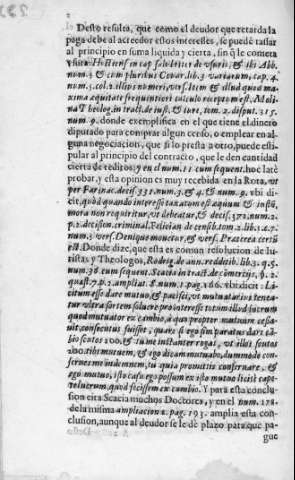 2
Desto resulta, que como el deudor que retarda la
paga debe al acreedor estos interesses, se puede tassar
al principio en suma liquida y cierta, sin q̃ le cometa
vsura Hostiens. in cap. salubriter de vsuris, & ibi Abb.
num. 3 & cum pluribus Covar. lib. 3 variarum, cap. 4.
num. 5. col. 2. illius numeri, vers. Item & illud quod ma-
xima equitate frequentiori calculo receptum est. Moli-
na Theolog. in tract. de iust. & iure, tom. 2. disput. 315.
num. 9. donde exemplifica en el que tiene el dinero
diputado para comprar algun censo, o emplear en al-
guna negociacion, que si lo presta a otro, puede esti-
pular al principio del contracto, que le den cantidad
cierta de reditos; y en el num. 11 cum sequent. hoc late
probat, y esta opinion es muy recebida en la Rota, vt
per Farinac. decis. 331. num. 3. & 4. & num. 9. vbi di-
cit, quòd quando interesse taxatum est æquum & iustũ,
mora non requiritur, vt debeatur, & decis. 372. num. 2.
p. 2. decision. criminal. Felician de censib. tom. 2. lib. 1. c. 7.
num. 3 vers. Denique monetur, & vers. Præterea certũ
est. Donde dize, que esta es comun resolucion de Iu-
ristas y Theologos, Rodrig. de ann. reddit. lib. 3. q. 5.
num. 36 cum sequent. Scacia in tract. de cõmercijs, §. 2.
quæst. 7. p. 2. ampliat. 8. num. 1. pag. 186. vbi dicit: Li-
citum esse dare mutuò, & pacisci, vt mutuatarius tenea-
tur vltra sortem soluere pro interesse totum illud lucrum
quod mutuator ex cambio, à quo propter mutuum cessa-
uit, consecutus fuisset, quare si ego sim paratus dare cã-
bio scutos 200. & tu me instanter rogas, vt illos scutos
200. tibi mutuem, & ego dicam mutuabo, dummodo con-
serues me indemnem, tu quia promittis conseruare, &
ego mutuo, isto casu ego possum ex isto mutuo licitè capere
lucrum, quod fecissem ex cambio. Y para esta conclu-
sion cita Scacia muchos Doctores, y en el num. 278.
de la misma ampliacion 8. pag. 193. amplia esta con-
clusion, aunque al deudor se le dè plazo para que pa-
gue